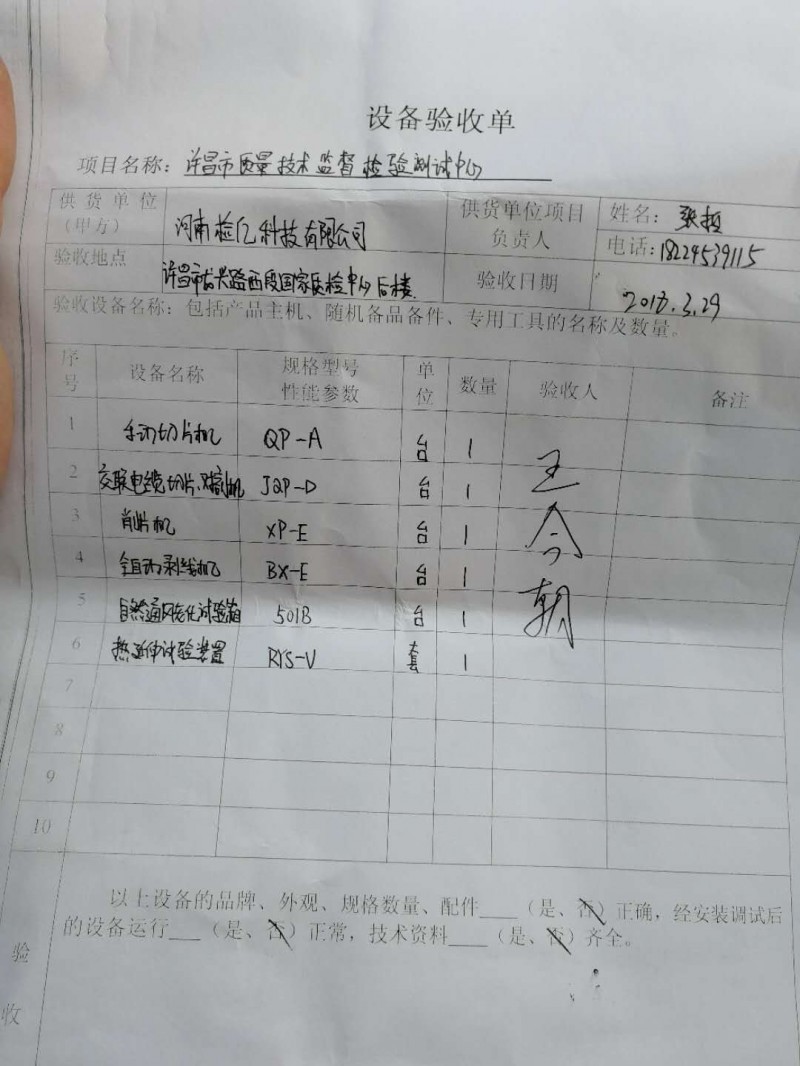 设备验收单
项目名称：许昌市质量技术监督检验测试中心
供货单位（甲方） 河南检亿科技有限公司 供货单位项目负责人 姓名：张
电话：18224539115
验收地点 许昌市 兴路西段国家质检中心后楼 验收日期 3.29
验收设备名称：包括产品主机、随机备品备件、专用工具的名称及数量。
序号 设备名称 规格型号性能参数 单位 数量 验收人 备注
1 手动切片机 QP-A 台 1
2 交联电缆切片、机 JQP-D 台 1
3 削片机 XP-E 台 1
4 全自动剥线机 BX-E 台 1
5 自然通风老化试验箱 501B 台 1
6 热延伸试验装置 RYS-V 套 1
王今朝
7
8
9
10
以上设备的品牌、外观、规格数量、配件____（是、否）正确，经安装调试后
的设备运行___（是、否）正常，技术资料____（是、否）齐全。
验
收